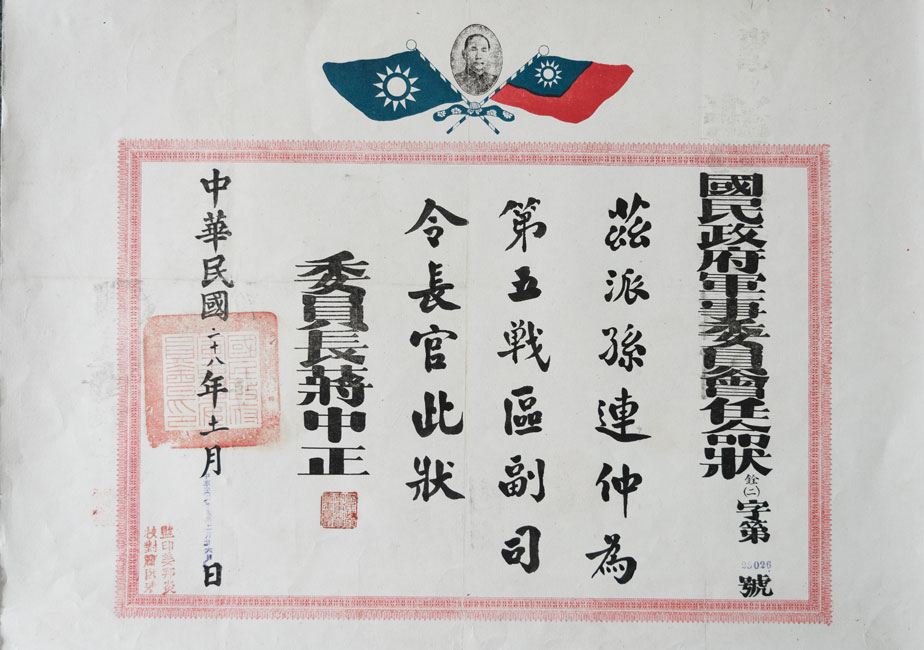 國民政府軍事委員會任命狀 銓(二)字第25026號
茲派孫連仲為
第五戰區副司
令長官此狀
委員長蔣中正
中華民國二十八年十一月 日
監印
校對